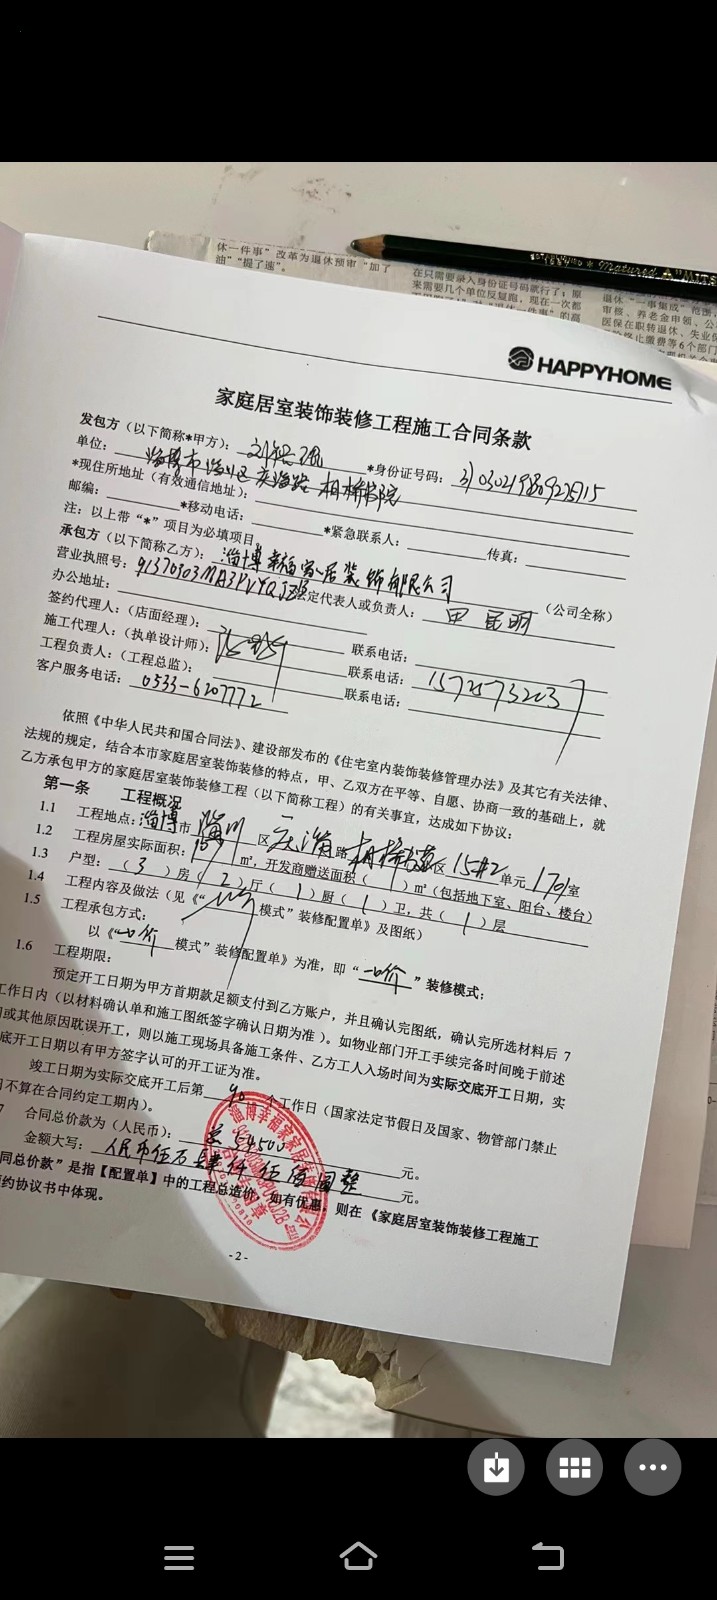 休一件事”改革为退休预审“加了
油”“提了速”。
在只需要录入身份证号码就行了；原
来需要几个单位反复跑，现在一次都
退休“一事集成”
审核、养老金申领、公
医保在职转退休、失业保
终止缴费等6个部门
HAPPYHOME
家庭居室装饰装修工程施工合同条款
发包方（以下简称*甲方）： *身份证号码：
单位：淄博市淄川区 柏桥书院
*现住所地址（有效通信地址）：
邮编： *移动电话： *紧急联系人： 传真：
注：以上带“*”项目为必填项目。
承包方（以下简称乙方）：淄博幸福家居装饰有限公司（公司全称）
营业执照号： 法定代表人或负责人：田昆明
办公地址：
签约代理人：（店面经理）： 联系电话：
施工代理人：（执单设计师）： 联系电话：1572573203
工程负责人：（工程总监）： 联系电话：
客户服务电话：0533-6207772
依照《中华人民共和国合同法》、建设部发布的《住宅室内装饰装修管理办法》及其它有关法律、
法规的规定，结合本市家庭居室装饰装修的特点，甲、乙双方在平等、自愿、协商一致的基础上，就
乙方承包甲方的家庭居室装饰装修工程（以下简称工程）的有关事宜，达成如下协议：
第一条 工程概况
1.1 工程地点：淄博市淄川区 路 区15#2单元1701室
1.2 工程房屋实际面积： ㎡，开发商赠送面积（ ）㎡（包括地下室、阳台、楼台）
1.3 户型：（3）房（2）厅（1）厨（1）卫，共（1）层
1.4 工程内容及做法（见《“ 模式”装修配置单》及图纸）
1.5 工程承包方式：
以《“一口价模式”装修配置单》为准，即“一口价”装修模式；
1.6 工程期限：
预定开工日期为甲方首期款足额支付到乙方账户，并且确认完图纸，确认完所选材料后 7
工作日内（以材料确认单和施工图纸签字确认日期为准）。如物业部门开工手续完备时间晚于前述
或其他原因耽误开工，则以施工现场具备施工条件、乙方工人入场时间为实际交底开工日期，实
底开工日期以有甲方签字认可的开工证为准。
竣工日期为实际交底开工后第90个工作日（国家法定节假日及国家、物管部门禁止
不算在合同约定工期内）。
7 合同总价款为（人民币）：54500元。
金额大写：人民币伍万肆仟伍佰圆整元。
同总价款”是指【配置单】中的工程总造价，如有优惠，则在《家庭居室装饰装修工程施工
约协议书中体现。
-2-